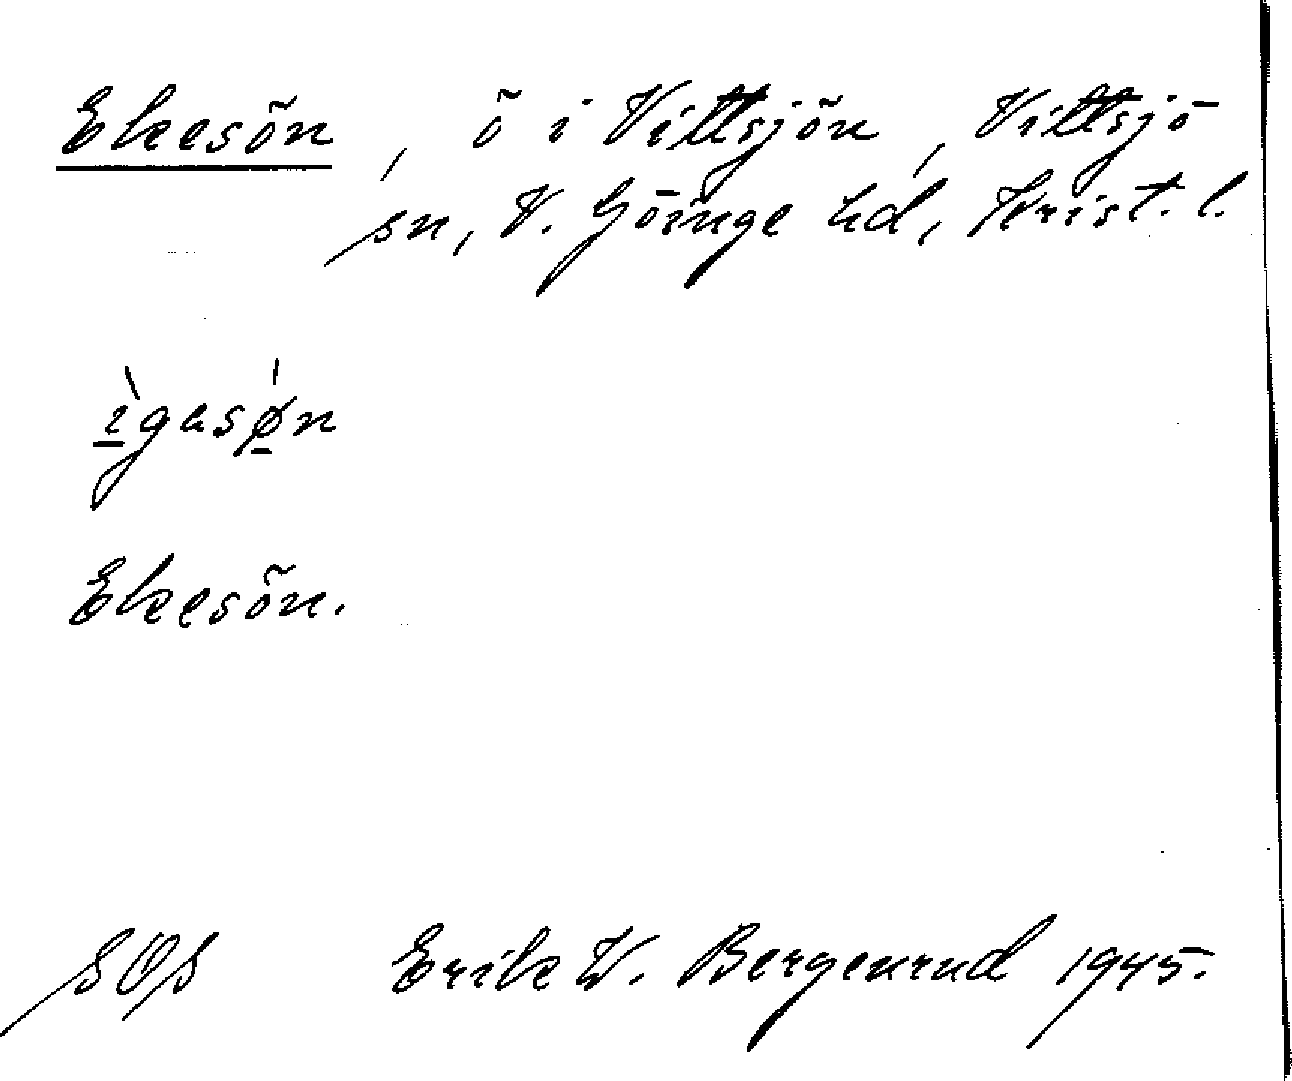 Ekesön, ö i Vittsjön, Vittsjö
sn, V. Göinge hd, Krist. l.
ìgasǿn
Ekesön.
SOS Erik W. Bergenrud 1945.